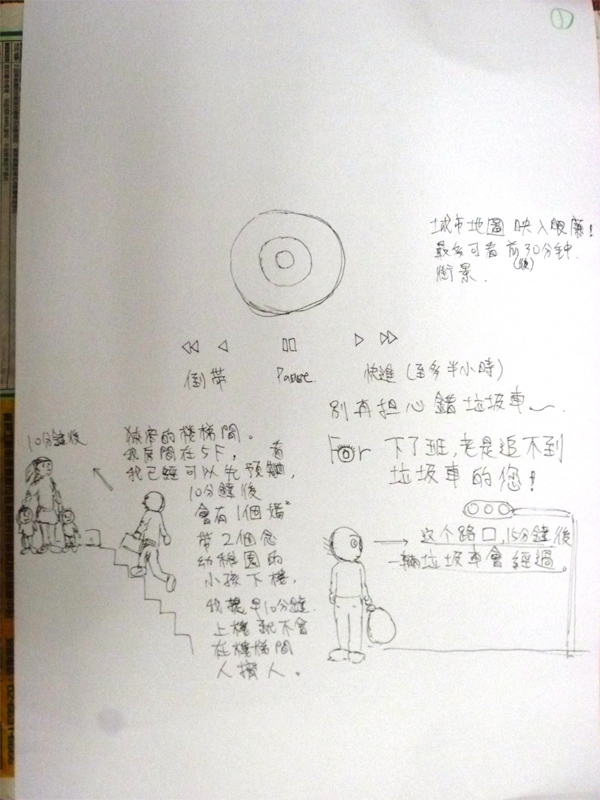 1
城市地圖 映入眼簾!
最多可看前30分钟
(後)
街景.
倒帶 Pause 快進(至多半小時)
別再担心錯垃圾車~.
For 下了班,老是追不到
垃圾車的您!
10分鐘後
狹窄的樓梯間。
我房間在5F,
我已經可以先預
看
10分鐘後
會有1個媽
帶2個念
幼稚園的
小孩下樓,
我提早10分鐘
上樓就不會
在樓梯間
人擠人。
这个路口,15分鐘後
一輛垃圾車會經過。